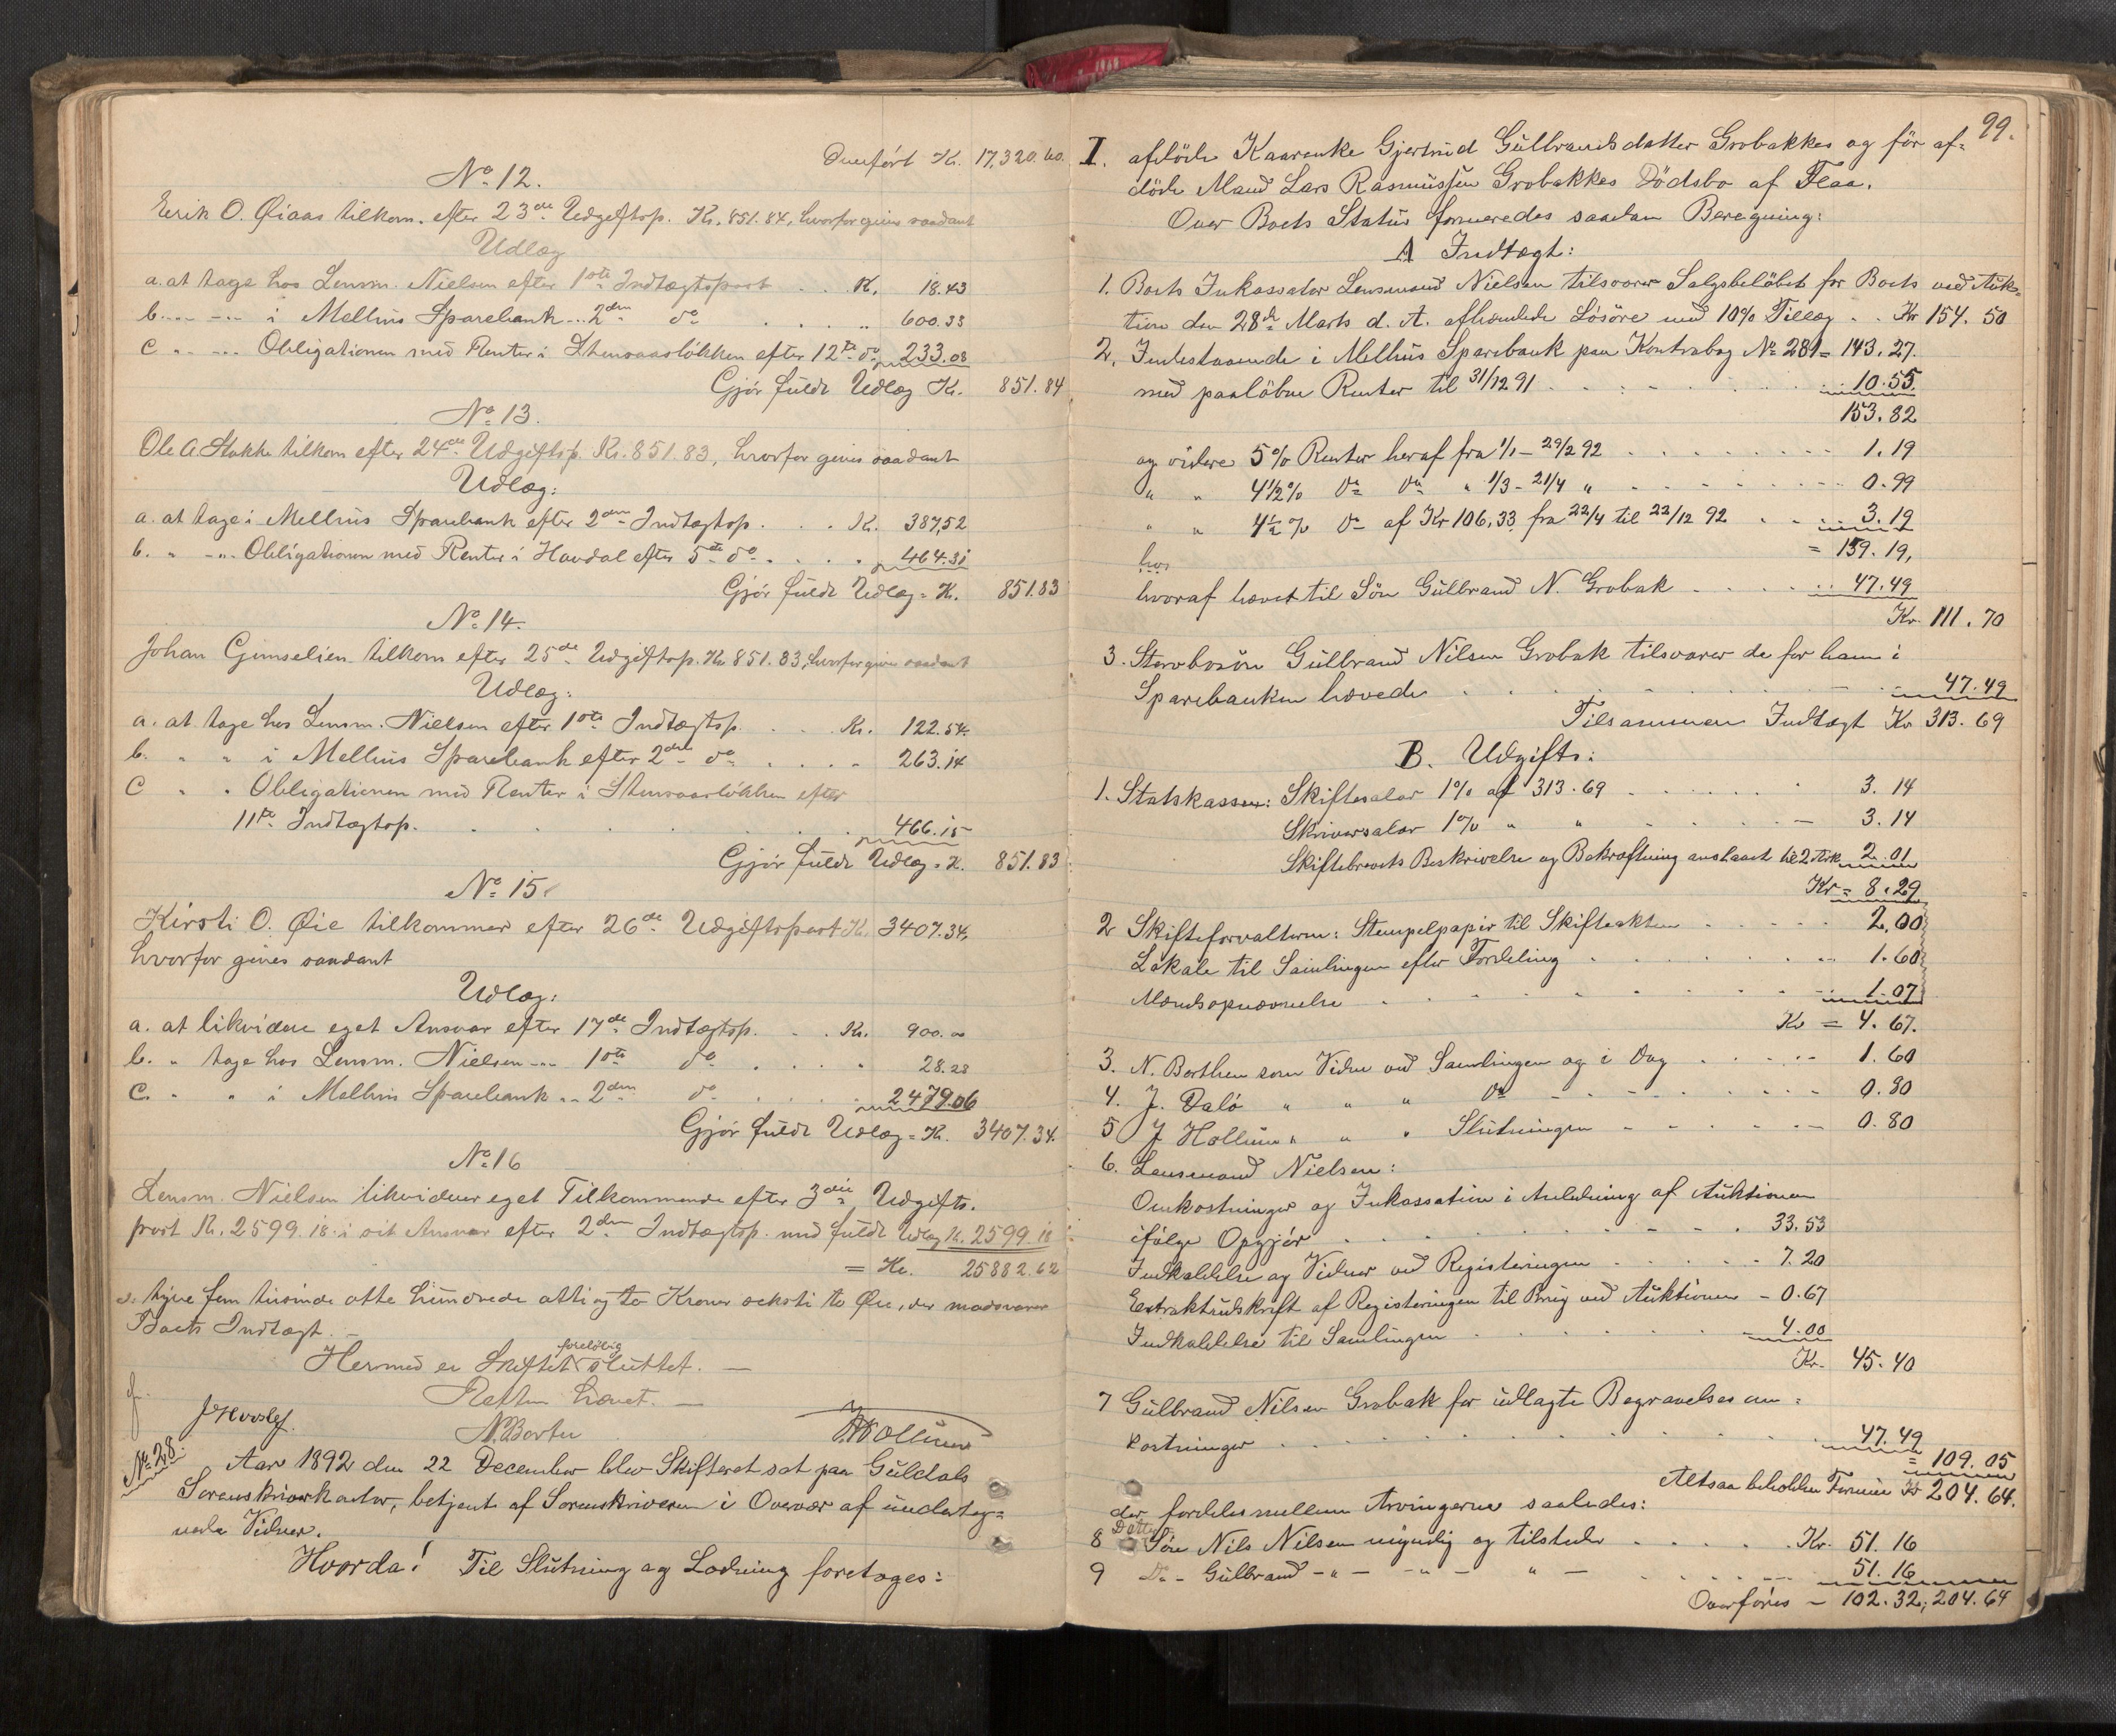 Overført Kr. 17,320.60.
No. 12.
Erik O. Øiaas tilkom. efter 23de Udgiftsp. Kr. 851.84, hvorfor gives saadant
Udlæg
a. at tage hos Lensm. Nielsen efter 1ste Indtægtspost . . K. 18.43
b. -"- -"- i Melhus Sparebank -"- 2den do . . . . . 600.33
c " -"- Obligationen med Renter i Stensaasløkken efter 12te do 233.08
Gjør fuldt Udlæg Kr. 851.84
No. 13.
Ole A Stokke tilkom efter 24de Udgiftsp. Kr. 851.83, hvorfor gives saadant
Udlæg:
a. at tage i Melhus Sparebank efter 2den Indtægtsp. . . . K. 387,52
b. " -"- Obligationen med Renter i Havdal efter 5te do . . . . . 464.31
Gjør fuldt Udlæg = K. 851.83
No. 14.
Johan Gimselien tilkom efter 25de Udgiftsp. Kr 851.83, hvorfor gives saadant
Udlæg:
a. at tage hos Lensm. Nielsen efter 1ste Indtægtsp. . . . Kr. 122.54.
b. " " i Melhus Sparebank efter 2den do . . . . . 263.14
c " " Obligationen med Renter i Stensaasløkken efter
11te Indtægtsp. . . . . . . . 466.15
Gjør fuldt Udlæg = K. 851.83
No. 15.
Kirsti O. Øie tilkommer efter 26de Udgiftspost K. 3407.34,
hvorfor gives saadant
Udlæg:
a. at likvidere eget Ansvar efter 17de Indtægtsp. . . Kr. 900.00
b. " tage hos Lensm. Nielsen -"- 1ste do . . . . . 28.28
c. " " i Melhus Sparebank -"- 2den do . . . . . 2479.06
Gjør fuldt Udlæg = K. 3407.34.
No. 16
Lensm. Nielsen likviderer eget Tilkommende efter 3die Udgifts-
post Kr. 2599.18 i sit Ansvar efter 2den Indtægtsp. med fuldt Udlæg K. 2599.18
= Kr. 25882.62
s. tyve fem tusinde otte hundrede otti og to Kroner seksti to Øre, der modsvarer
Boets Indtægt. -
Hermed er Skiftet foreløbig sluttet. -
Retten hævet. -
N. Borten J. Hollum
No. 28. Aar 1892 den 22 December blev Skifteret sat paa Guldals
Sorenskriverkontor, betjent af Sorenskriveren i Overvær af underteg=
nede Vidner.
Hvorda! Til Slutning og Lodning foretoges:
99.
I. afdøde Kaarenke Gjertrud Gulbrandsdatter Grobakkes og før af=
døde Mand Lars Rasmussen Grobakkes Dødsbo af Flaa.
Over Boets Status formeredes saadan Beregning:
A Indtægt:
1. Boets Inkassator Lensmand Nielsen tilsvarer Salgsbeløbet for Boets ved Auk=
tion den 28de Marts d. A. afhændede Løsøre med 10% Tillæg . . Kr 154.50
2. Indestaaende i Melhus Sparebank paa Kontrabog No 281 = 143.27.
med paaløbne Renter til 31/12 91 . . . . . . 10.55.
153.82
og videre 5% Renter heraf fra 1/1 - 29/2 92 . . . . . . 1.19
" " 4 1/2 % Do Do " 1/3 - 21/4 " . . . . . . 0.99
" " 4 1/2 % Do af Kr 106,33 fra 22/4 til 22/12 92 . . . 3.19
= 159.19,
hvo
hvoraf hævet til Søn Gulbrand N. Grobak . . . . 47.49
Kr. 111.70
3. Stervbosøn Gulbrand Nilsen Grobak tilsvarer de for ham i
Sparebanken hævede . . . . . . . 47.49
Tilsammen Indtægt Kr 313.69
B. Udgifts:
1. Statskassen: Skiftesalær 1% af 313.69 . . . . . . 3.14
Skriversalær 1% " " . . . . - 3.14
Skiftebrevets Beskrivelse og Bekræftning anslaaet til 2 Ark 2.01
Kr = 8.29
2 Skifteforvalteren: Stempelpapir til Skifteakten . . . . . 2.00
Lokale til Samlingen efter Fordeling . . . . . . 1.60
Mandsopnævnelse . . . . . . . 1.07
Kr = 4.67.
3. N. Borthen som Vidne ved Samlingen og i Dag . . . . . 1.60
4. J. Dalø " " " Do . . . . . . . 0.80
5 J Hollum " " " Slutningen . . . . . 0.80
6. Lensmand Nielsen:
Omkostninger og Inkassation i Anledning af Auktionen
ifølge Opgjør . . . . . . . . 33.53
Indkaldelse og Vidner ved Registeringen . . . . . 7.20
Extraktudskrift af Registeringen til Brug ved Auktionen - 0.67
Indkaldelse til Samlingen . . . . . . 4.00
Kr. 45.40
7 Gulbrand Nilsen Grobak for udlagte Begravelsesom=
kostninger . . . . . . . . 47.49
= 109.05
Altsaa beholden Formue Kr 204.64.
der fordeles mellem Arvingerne saaledes:
8 Søn Nils Nilsen myndig og tilstede . . . . . Kr. 51.16
9 Do - Gulbrand -"- -"- " - . . . . . 51.16
Overføres - 102.32; 204.64